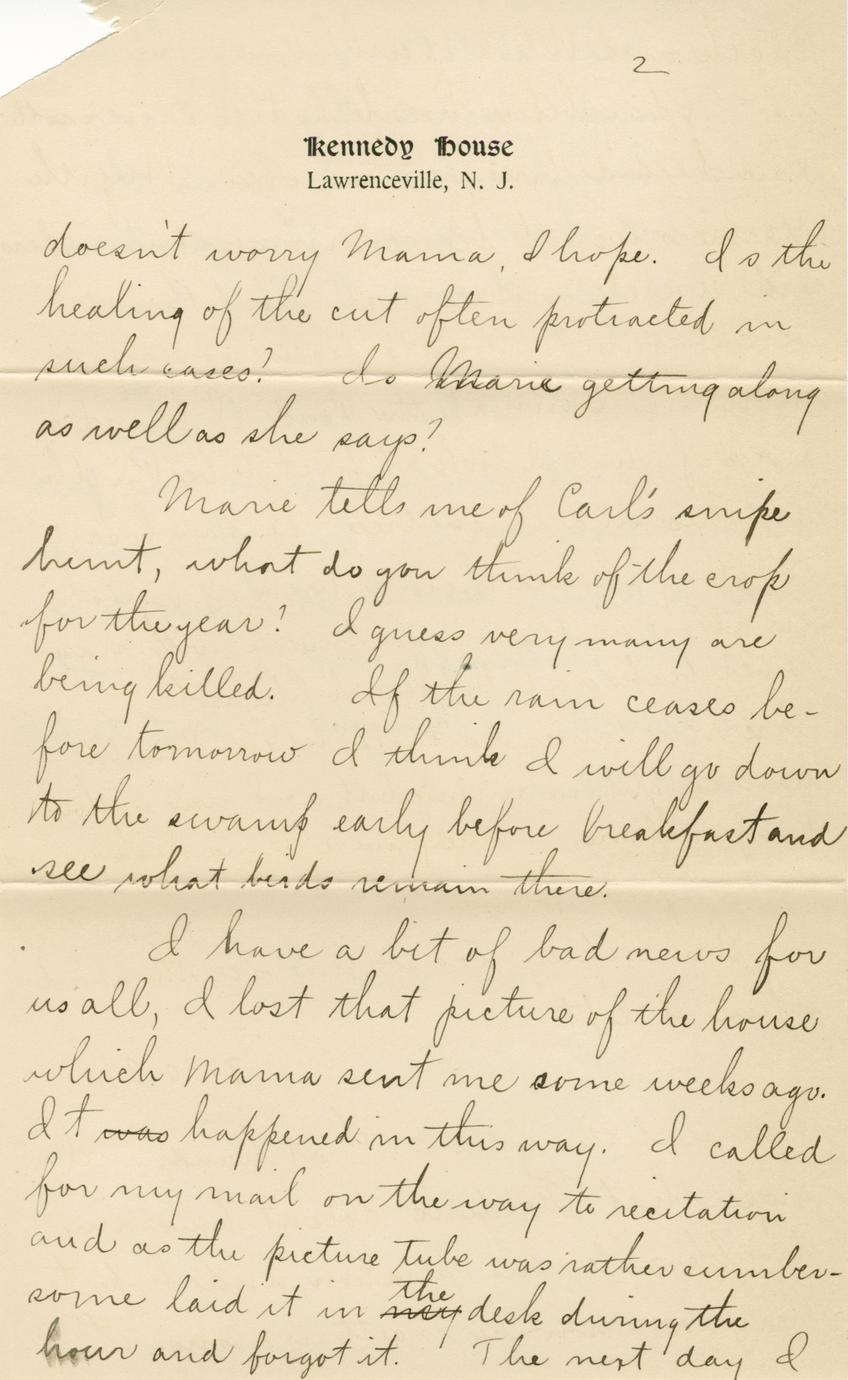 2
Kennedy House
Lawrenceville, N. J.
doesn't worry Mama, I hope. Is the
healing of the cut often protracted in
such cases? Is Marie getting along
as well as she says?
Marie tells me of Carl's snipe
hunt, what do you think of the crop
for the year? I guess very many are
being killed. If the rain ceases be-
fore tomorrow I think I will go down
to the swamp early before breakfast and
see what birds remain there.
I have a bit of bad news for
us all, I lost that picture of the house
which Mama sent me some weeks ago.
It was happened in this way. I called
for my mail on the way to recitation
and as the picture tube was rather cumber-
some laid it in my the desk during the
hour and forgot it. The next day I